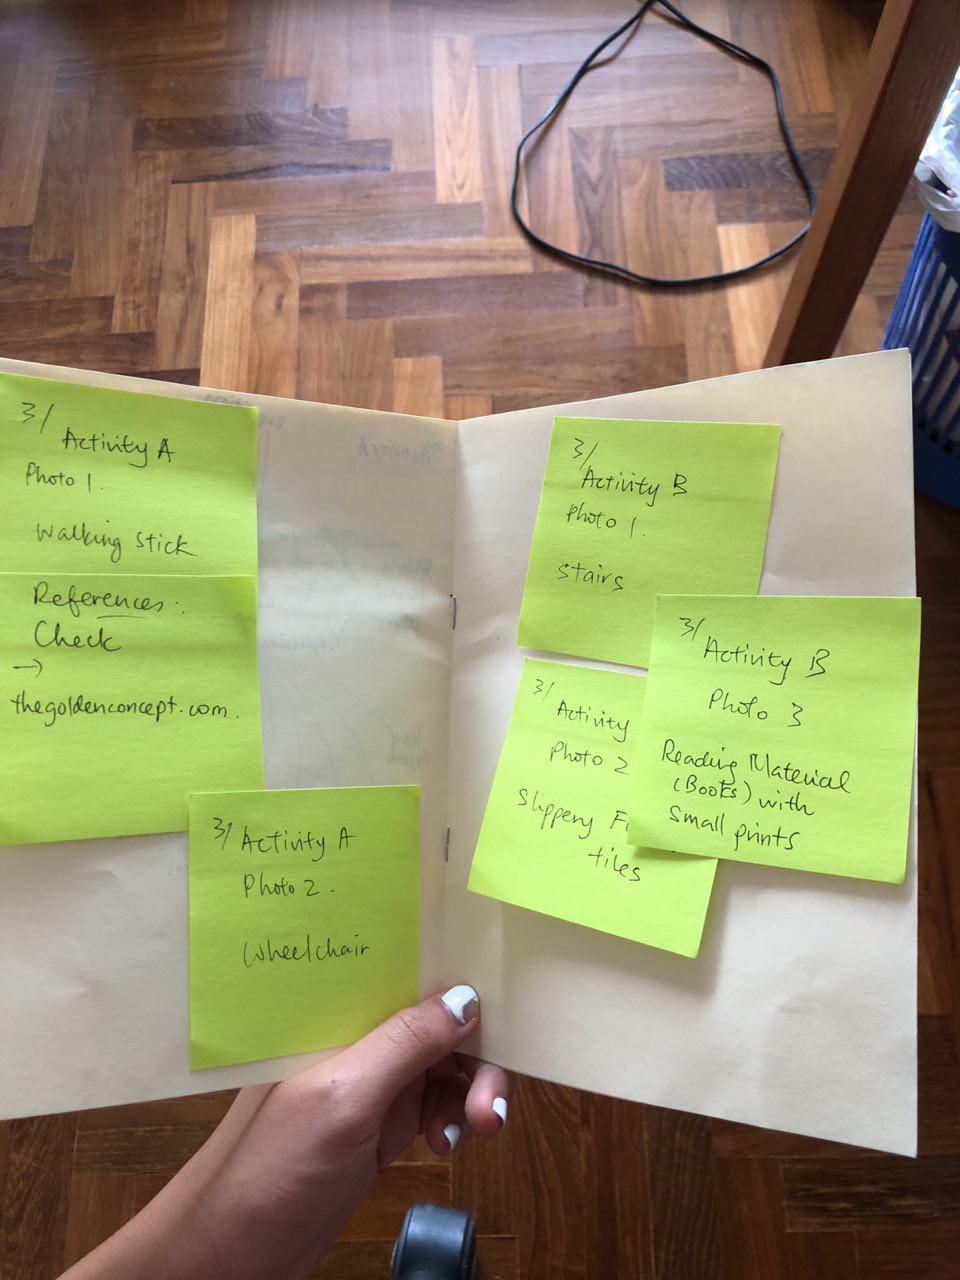 3/
Activity A
Photo 1.
Walking Stick
References:
Check
→
thegoldenconcept.com.
3/ Activity A
Photo 2.
Wheelchair
3/
Activity B
Photo 1.
Stairs
3/
Activity
Photo 2
Slippery
tiles
3/
Activity B
Photo 3
Reading Material
(Books) with
Small prints